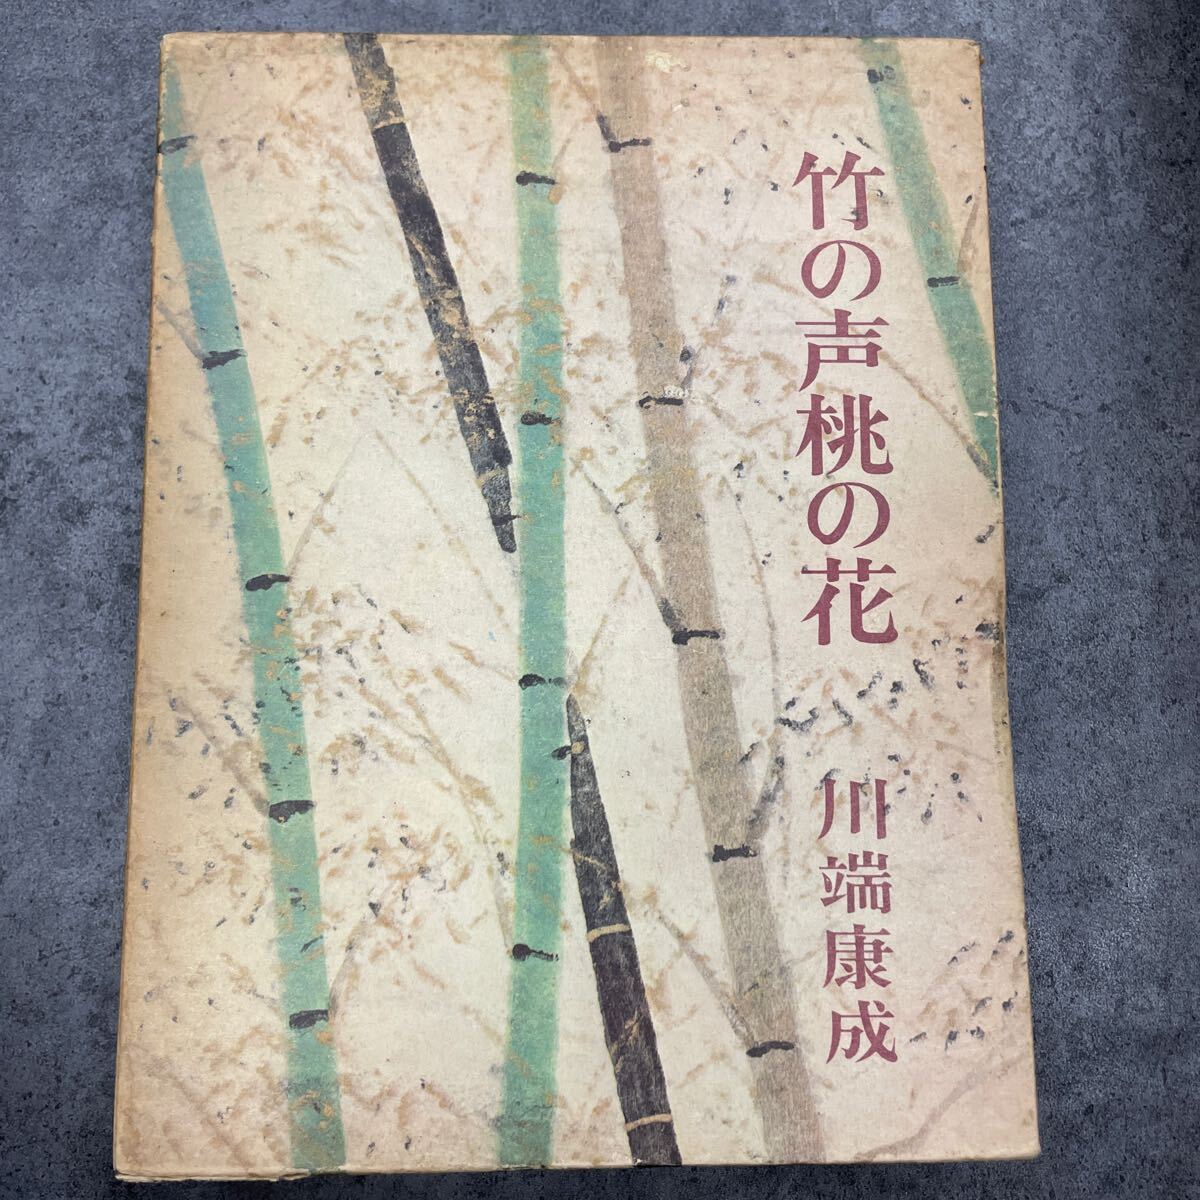 竹の声桃の花
川端康成